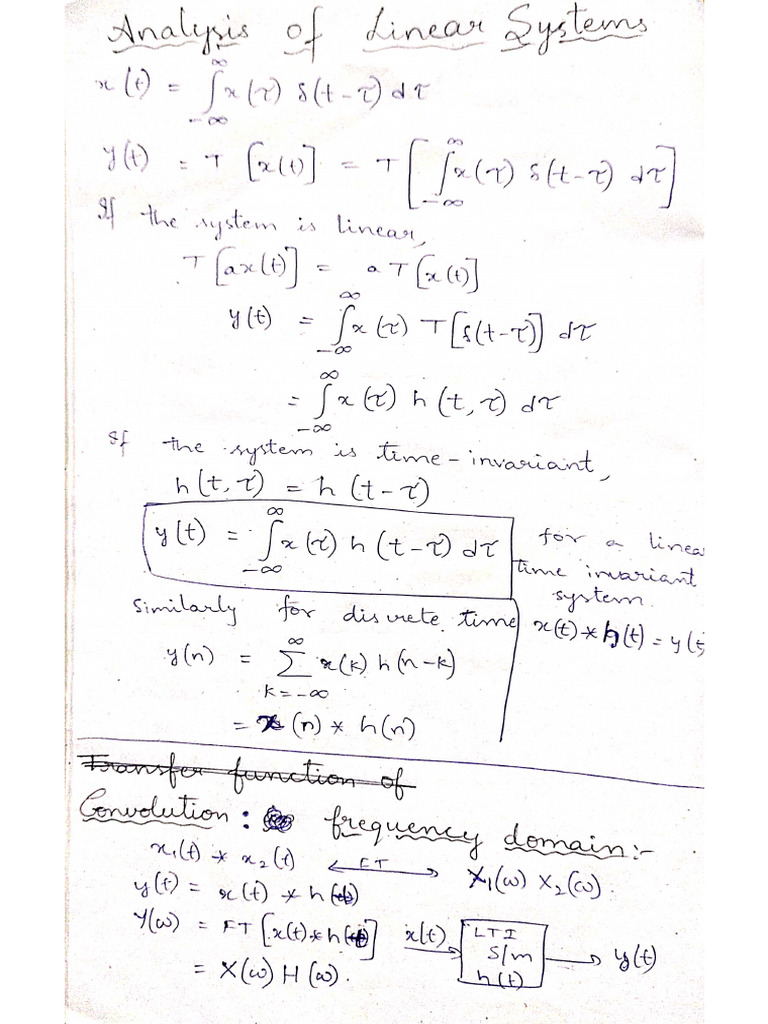 Analysis of Linear Systems
x(t) = ∫_{-∞}^{∞} x(τ) δ(t-τ) dτ
y(t) = T [x(t)] = T [∫_{-∞}^{∞} x(τ) δ(t-τ) dτ]
If the system is linear,
T[ax(t)] = a T[x(t)]
y(t) = ∫_{-∞}^{∞} x(τ) T[δ(t-τ)] dτ
= ∫_{-∞}^{∞} x(τ) h(t, τ) dτ
If the system is time-invariant,
h(t, τ) = h(t-τ)
y(t) = ∫_{-∞}^{∞} x(τ) h(t-τ) dτ
for a linea
time invariant
system.
x(t) * h(t) = y(t
Similarly for discrete time
y(n) = ∑_{k=-∞}^{∞} x(k) h(n-k)
= x(n) * h(n)
Transfer function of
Convolution: frequency domain:-
x₁(t) * x₂(t) ←FT→ X₁(ω) X₂(ω).
y(t) = x(t) * h(t)
Y(ω) = FT[x(t) * h(t)]
= X(ω) H(ω).
x(t)
LTI
S/m
h(t)
y(t)